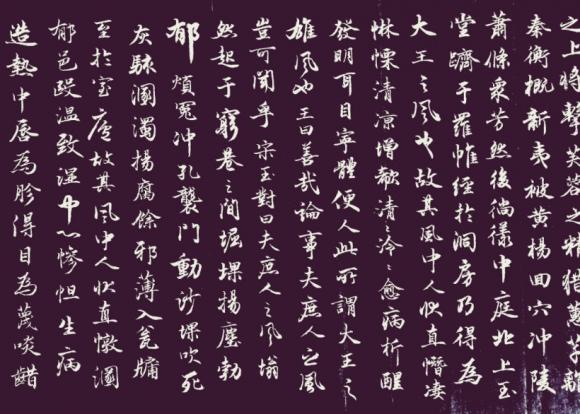 之上將擊芙蓉之精獵蕙草離
秦衡概新夷被黃楊回穴沖陵
蕭條衆芳然後徜徉中庭北上玉
堂躋于羅帷經於洞房乃得為
大王之風也故其風中人狀直憯凄
惏慄清凉增欷清〻泠〻愈病析酲
發明耳目寧體便人此所謂大王之
雄風也王曰善哉論事夫庶人之風
豈可聞乎宋玉對曰夫庶人之風塕
然起于窮巷之間堀堁揚塵勃
郁煩冤冲孔襲門動沙堁吹死
灰駭溷濁揚腐餘邪薄入瓮牖
至於室廬故其風中人狀直憞溷
郁邑毆溫致濕中心慘怛生病
造熱中唇為胗得目為蔑啖齰